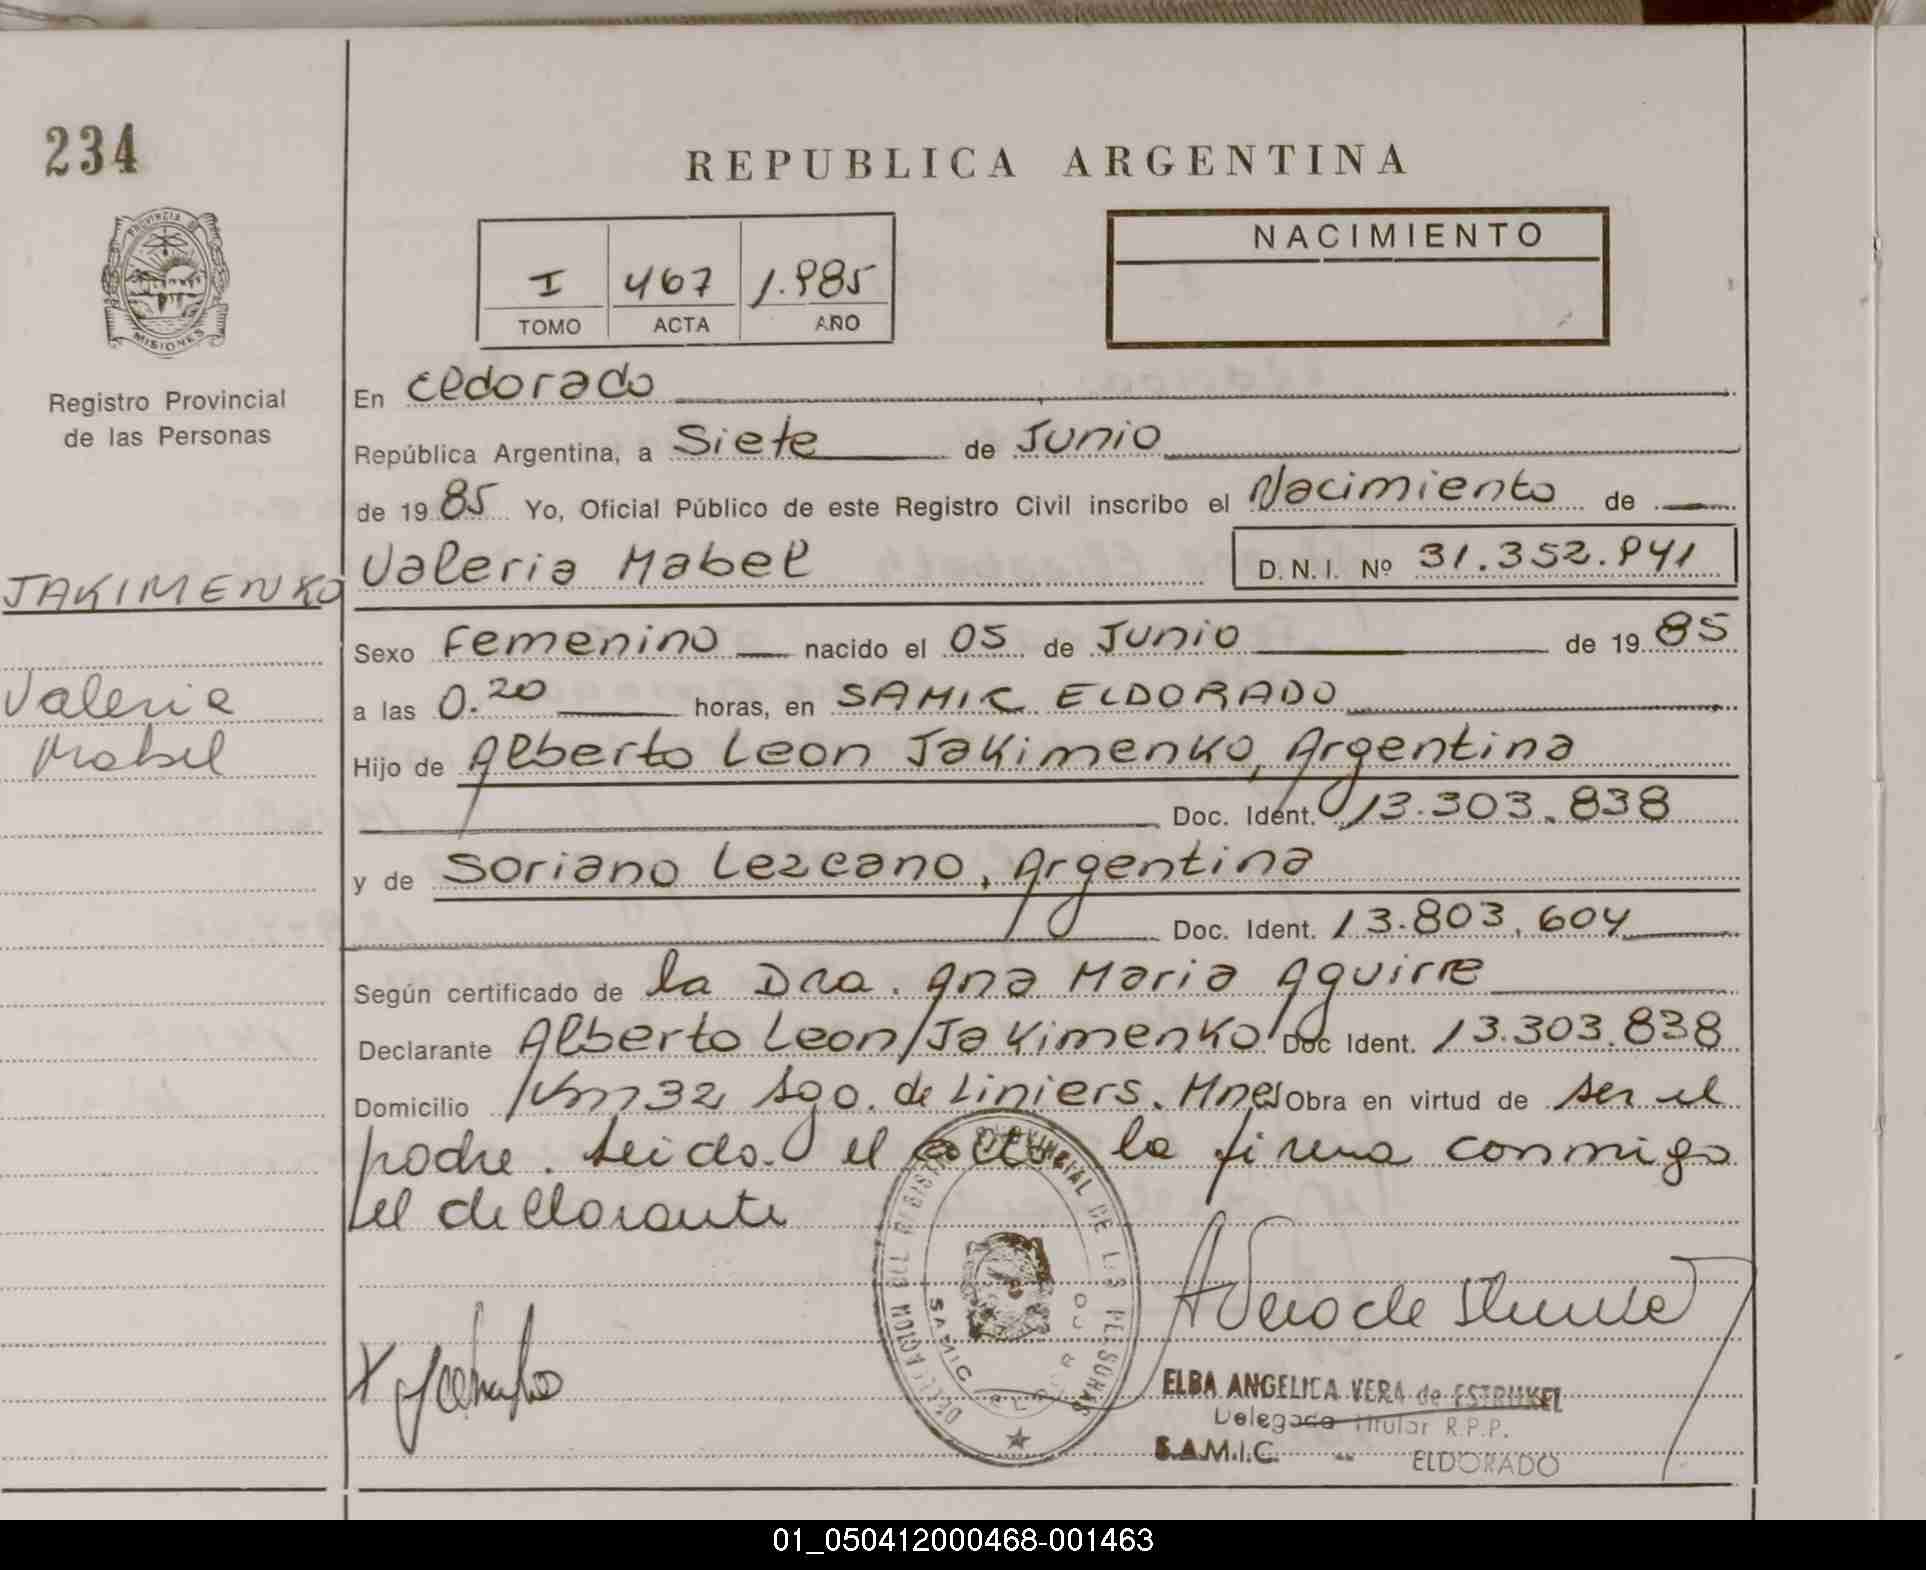 234
REPUBLICA ARGENTINA
NACIMIENTO
I 467 1.985
TOMO ACTA AÑO
PROVINCIA DE
MISIONES
Registro Provincial
de las Personas
En eldorado
República Argentina, a Siete de Junio
de 1985 Yo, Oficial Público de este Registro Civil inscribo el Nacimiento de
JAKIMENKO
Valeria Mabel D.N.I. Nº 31.352.941
Valeria
Mabel
Sexo Femenino nacido el 05 de Junio de 1985
a las 0.20 horas, en SAMIC ELDORADO
Hijo de Alberto Leon Jakimenko, Argentina
Doc. Ident. 13.303.838
y de Soriano Lezcano, Argentina
Doc. Ident. 13.803.604
Según certificado de la Dra. Ana Maria Aguirre
Declarante Alberto Leon Jakimenko Doc Ident. 13.303.838
Domicilio Km 32 Sgo. de Liniers. Mnes Obra en virtud de ser el
padre. Leido el acta la firma conmigo
el declarante
PROVINCIAL DE LAS PERSONAS
SAMIC
ELBA ANGELICA VERA de ESTRUKEL
Delegada Titular R.P.P.
S.A.M.I.C. - ELDORADO
01_050412000468-001463